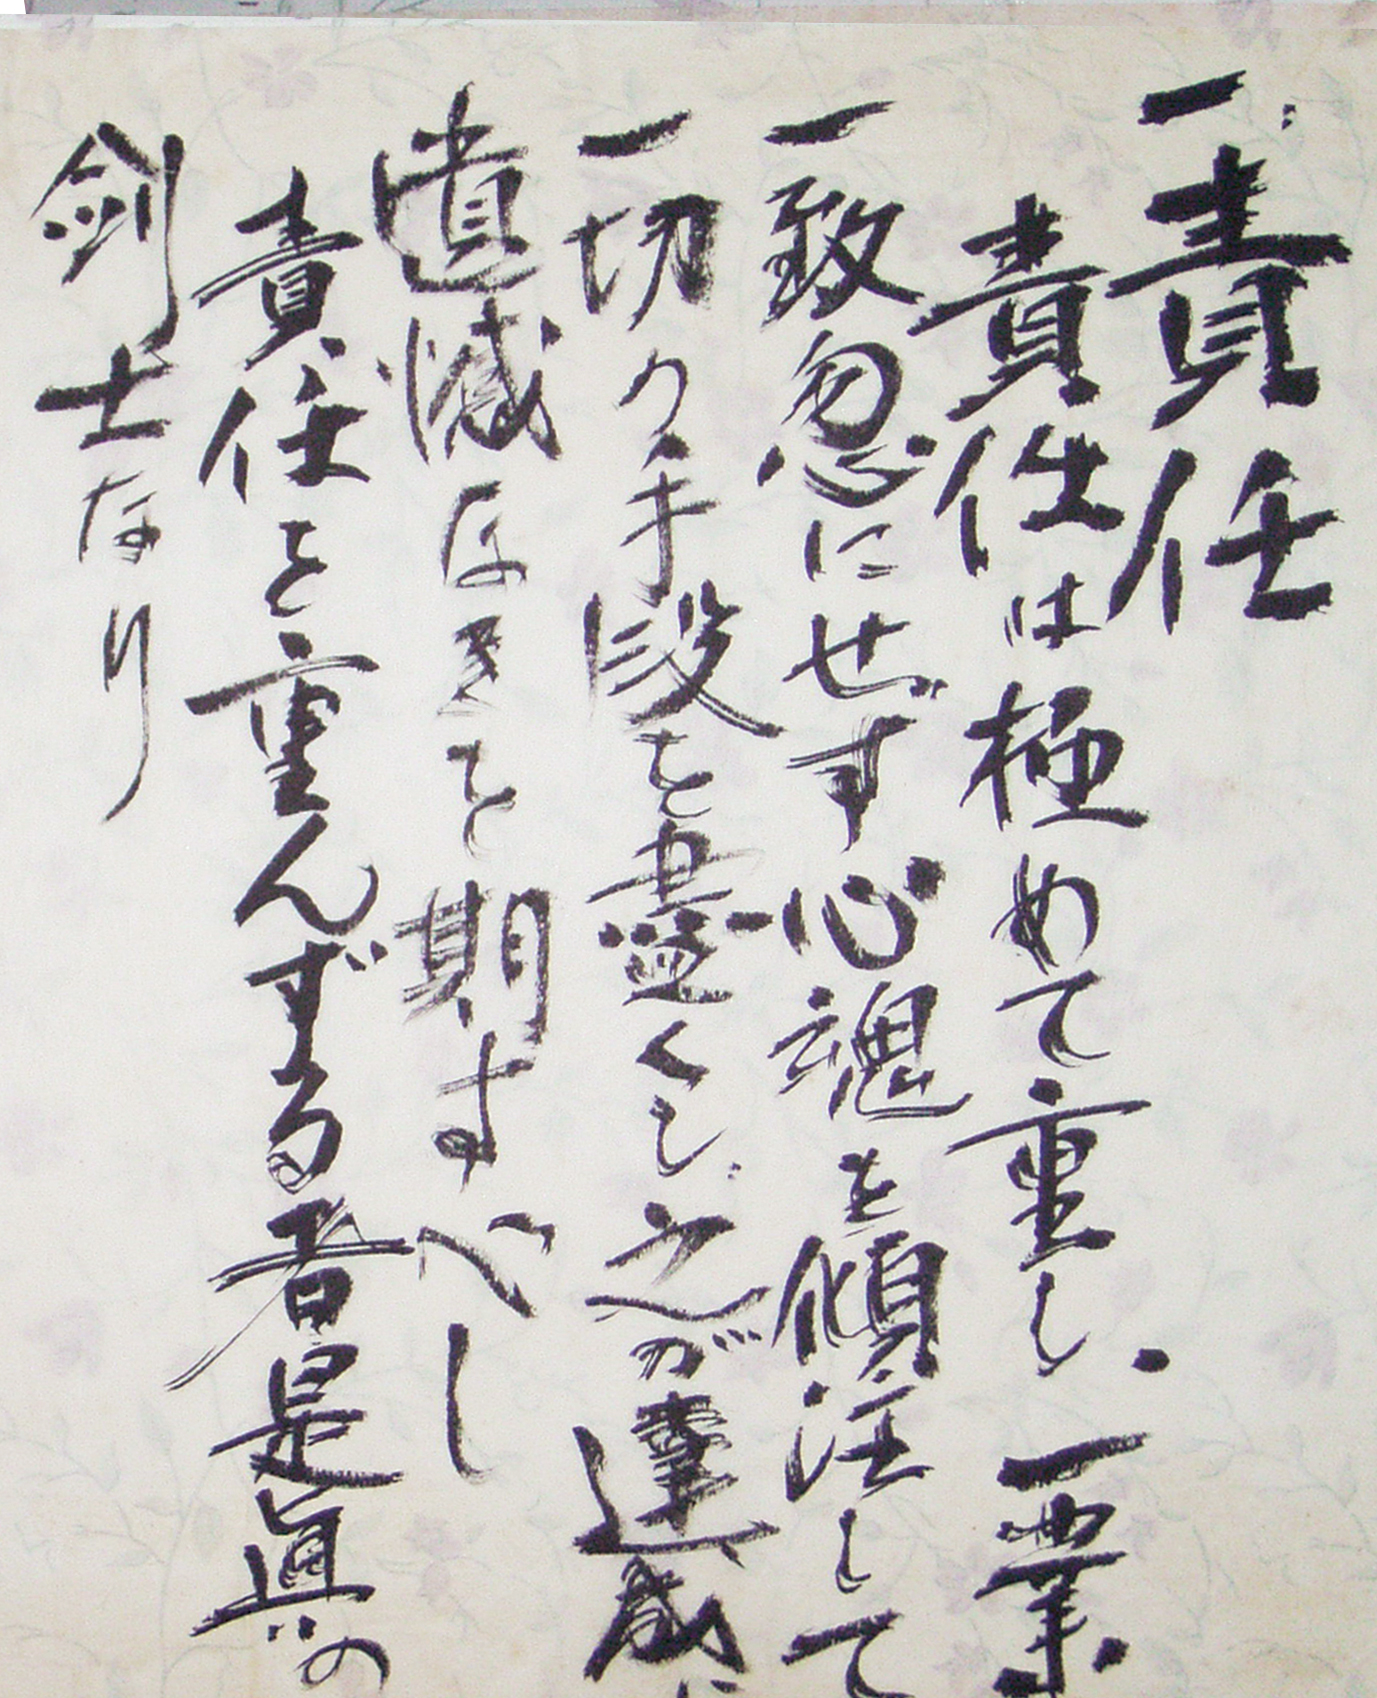 一、責任
責任は極めて重し、一業
一致忽にせず心魂を傾注して
一切の手段を盡くし之が達成に
遺憾なきを期すべし
責任を重んずる者是眞の
剣士なり